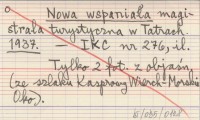 Nowa wspaniała magi-
strala turystyczna w Tatrach.
1937. — IKC nr 276, il.
Tylko 2 fot. z objaśn.
(ze szlaku Kasprowy Wierch - Morskie
Oko).